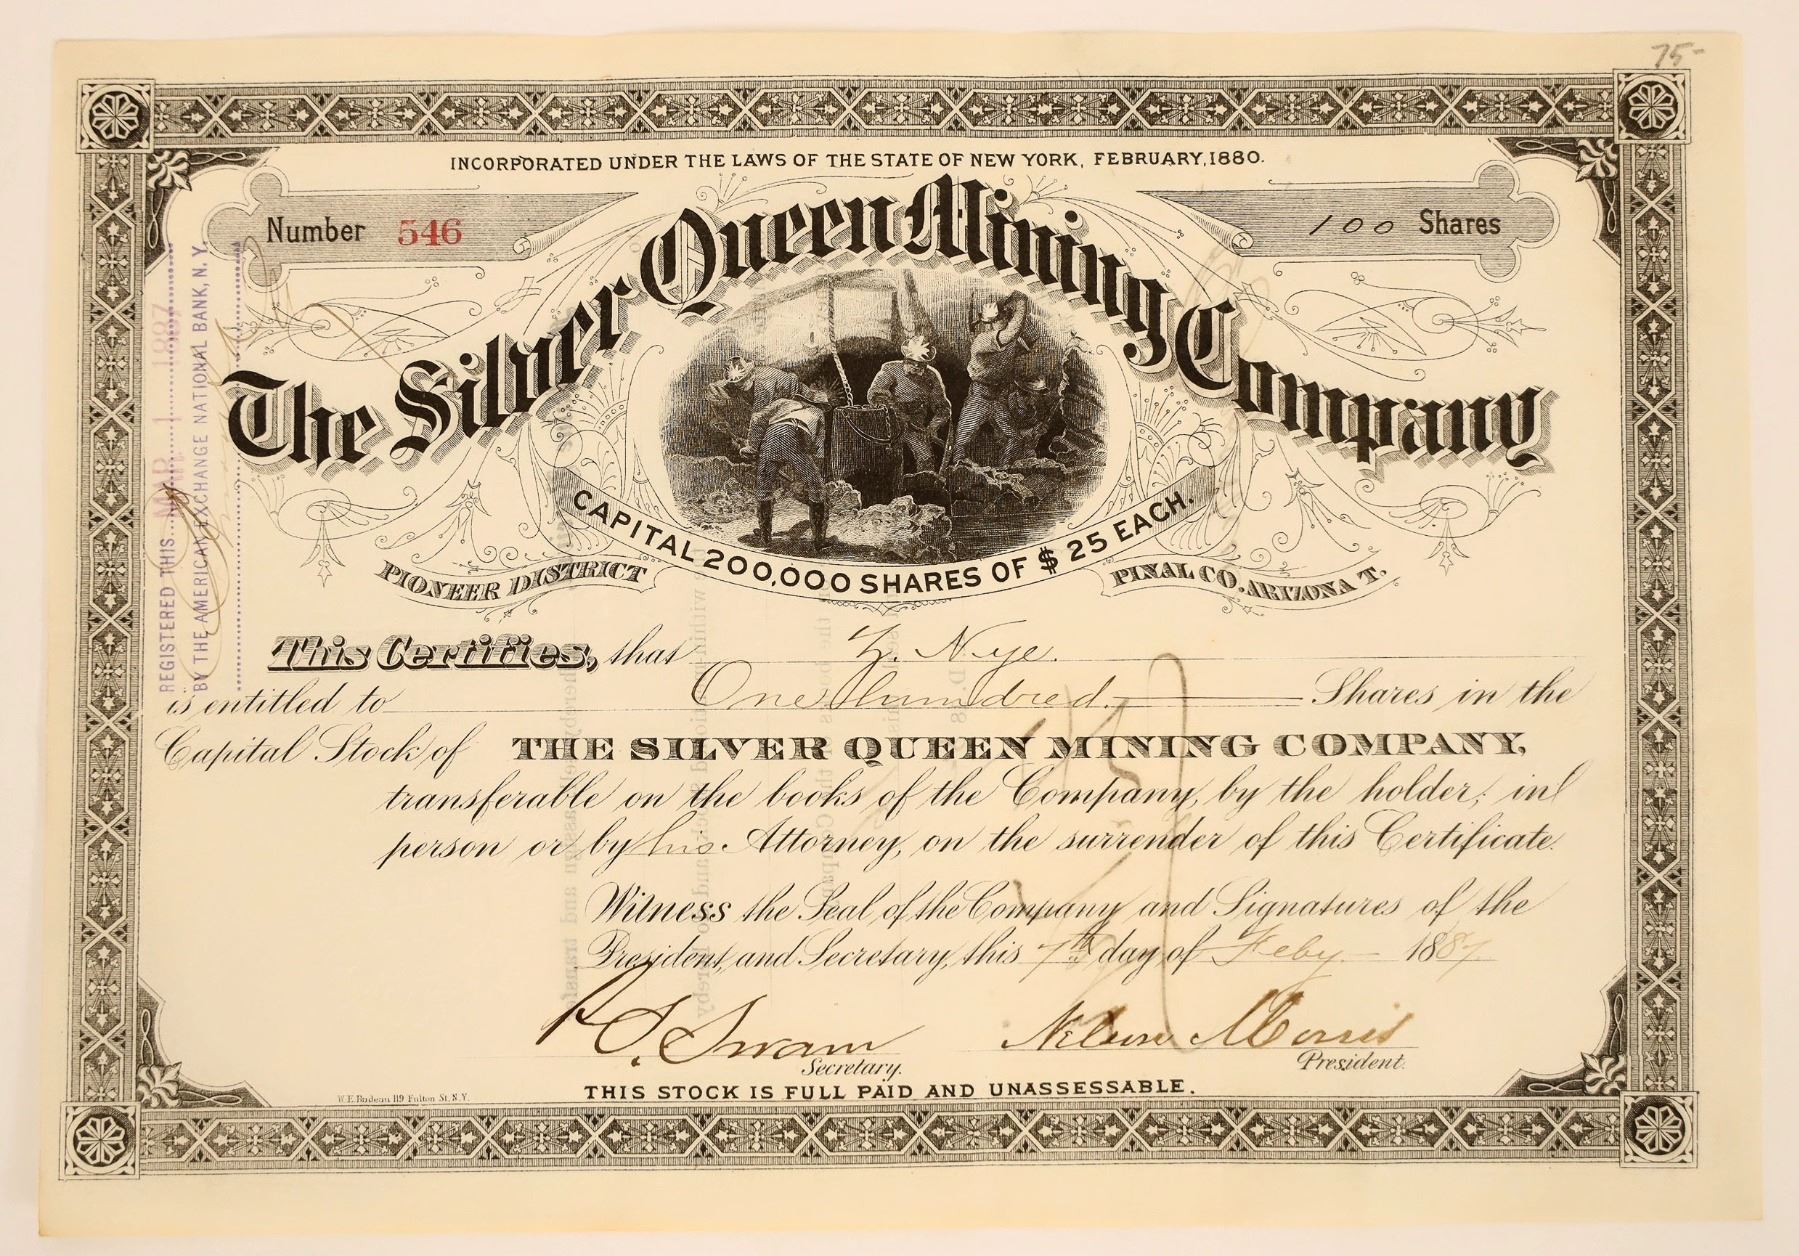 75-
INCORPORATED UNDER THE LAWS OF THE STATE OF NEW YORK, FEBRUARY, 1880.
Number 546
100 Shares
The Silver Queen Mining Company
CAPITAL 200,000 SHARES OF $25 EACH.
PIONEER DISTRICT
PINAL CO. ARIZONA T.
REGISTERED THIS MAR 1 1887
BY THE AMERICAN EXCHANGE NATIONAL BANK, N.Y.
This Certifies, that Z. Nye.
is entitled to One Hundred. Shares in the
Capital Stock of THE SILVER QUEEN MINING COMPANY,
transferable on the books of the Company, by the holder, in
person or by his Attorney, on the surrender of this Certificate.
Witness the Seal of the Company and Signatures of the
President, and Secretary, this 7th day of Feby 1887.
Swam
Secretary.
Nelson Morris
President.
THIS STOCK IS FULL PAID AND UNASSESSABLE.
119 Fulton St. N.Y.